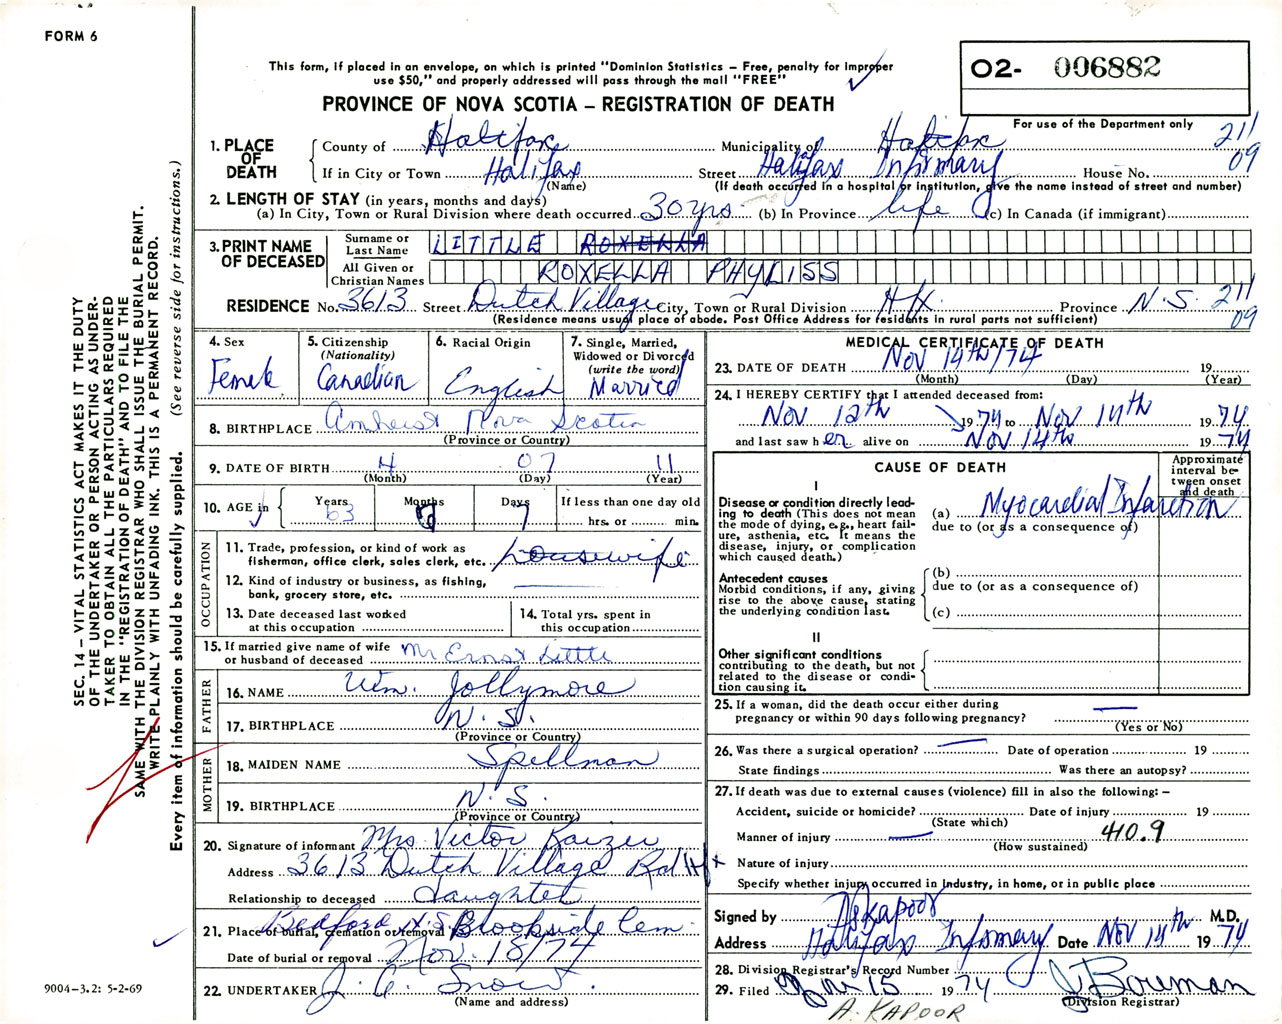 FORM 6
This form, if placed in an envelope, on which is printed "Dominion Statistics – Free, penalty for improper
use $50," and properly addressed will pass through the mail "FREE"
PROVINCE OF NOVA SCOTIA – REGISTRATION OF DEATH
O2- 006882
For use of the Department only
211
09
1. PLACE OF DEATH
County of Halifax Municipality of Halifax
If in City or Town Halifax Street Halifax Infirmary House No.
(Name) (If death occurred in a hospital or institution, give the name instead of street and number)
2. LENGTH OF STAY (in years, months and days)
(a) In City, Town or Rural Division where death occurred 30 yrs (b) In Province life (c) In Canada (if immigrant)
3. PRINT NAME OF DECEASED
Surname or Last Name LITTLE ROXELLA
All Given or Christian Names ROXELLA PHYLISS
RESIDENCE No. 3613 Street Dutch Village City, Town or Rural Division Hfx. Province N.S. 211
09
(Residence means usual place of abode. Post Office Address for residents in rural parts not sufficient)
4. Sex Female
5. Citizenship (Nationality) Canadian
6. Racial Origin English
7. Single, Married, Widowed or Divorced (write the word) Married
8. BIRTHPLACE Amherst Nova Scotia
(Province or Country)
9. DATE OF BIRTH 4 07 11
(Month) (Day) (Year)
10. AGE in Years 63 Months Days 7 If less than one day old
hrs. or min.
OCCUPATION
11. Trade, profession, or kind of work as
fisherman, office clerk, sales clerk, etc. housewife
12. Kind of industry or business, as fishing,
bank, grocery store, etc.
13. Date deceased last worked
at this occupation
14. Total yrs. spent in
this occupation
15. If married give name of wife
or husband of deceased Mr Ernst Little
FATHER
16. NAME Wm. Jollymore
17. BIRTHPLACE N.S.
(Province or Country)
MOTHER
18. MAIDEN NAME Spellman
19. BIRTHPLACE N.S.
(Province or Country)
20. Signature of informant Mrs Victor Kaizer
Address 3613 Dutch Village Rd Hfx
Relationship to deceased daughter
21. Place of burial, cremation or removal Bedford N.S. Brookside Cem.
Date of burial or removal Nov. 18/74
22. UNDERTAKER J. A. Snow
(Name and address)
MEDICAL CERTIFICATE OF DEATH
23. DATE OF DEATH Nov 14th/74 19
(Month) (Day) (Year)
24. I HEREBY CERTIFY that I attended deceased from:
Nov 12th 1974 to Nov 14th 1974
and last saw her alive on Nov 14th 1974
CAUSE OF DEATH
Approximate interval between onset and death
I
Disease or condition directly leading to death (This does not mean the mode of dying, e.g., heart failure, asthenia, etc. It means the disease, injury, or complication which caused death.)
(a) Myocardial Infarction
due to (or as a consequence of)
Antecedent causes
Morbid conditions, if any, giving rise to the above cause, stating the underlying condition last.
(b)
due to (or as a consequence of)
(c)
II
Other significant conditions
contributing to the death, but not related to the disease or condition causing it.
25. If a woman, did the death occur either during
pregnancy or within 90 days following pregnancy?
(Yes or No)
26. Was there a surgical operation? Date of operation 19
State findings Was there an autopsy?
27. If death was due to external causes (violence) fill in also the following: –
Accident, suicide or homicide? Date of injury 19
(State which)
Manner of injury 410.9
(How sustained)
Nature of injury
Specify whether injury occurred in industry, in home, or in public place
Signed by A Kapoor M.D.
Address Halifax Infirmary Date Nov 14th 1974
28. Division Registrar's Record Number
29. Filed Nov 15 1974 J Bowman
(Division Registrar)
A. KAPOOR
SEC. 14 – VITAL STATISTICS ACT MAKES IT THE DUTY
OF THE UNDERTAKER OR PERSON ACTING AS UNDER-
TAKER TO OBTAIN ALL THE PARTICULARS REQUIRED
IN THE "REGISTRATION OF DEATH" AND TO FILE THE
SAME WITH THE DIVISION REGISTRAR WHO SHALL ISSUE THE BURIAL PERMIT.
WRITE PLAINLY WITH UNFADING INK. THIS IS A PERMANENT RECORD.
Every item of information should be carefully supplied. (See reverse side for instructions.)
9004–3.2: 5-2-69